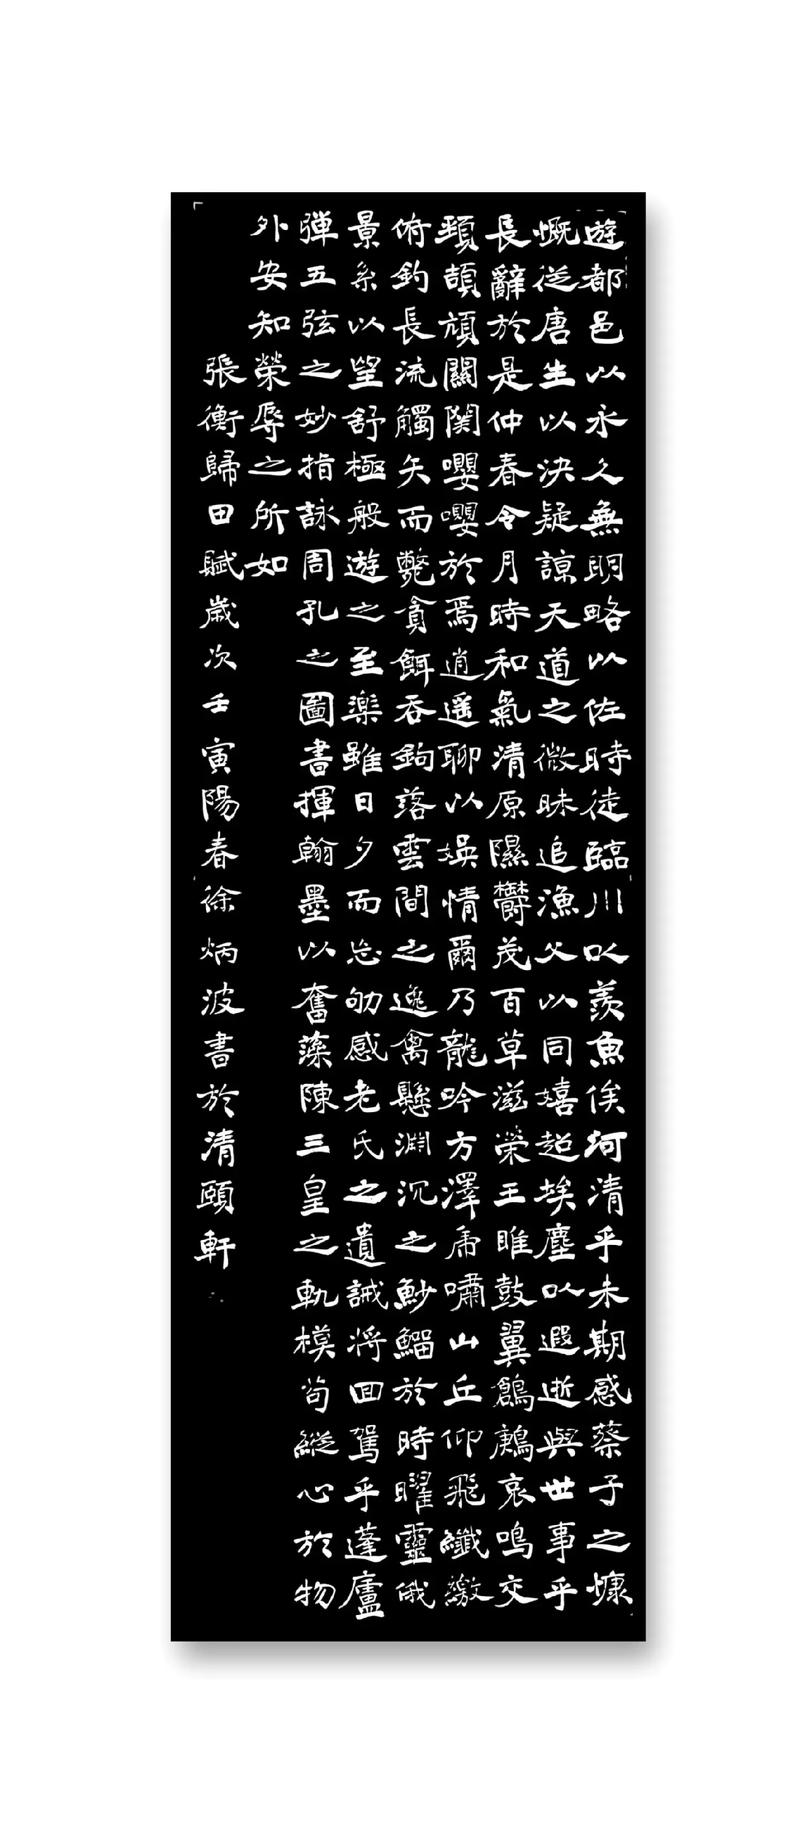 遊都邑以永久無明略以佐時徒臨川以羨魚俟河清乎未期感蔡子之慷
慨從唐生以決疑諒天道之微昧追漁父以同嬉超埃塵以遐逝與世事乎
長辭於是仲春令月時和氣清原隰鬱茂百草滋榮王雎鼓翼鶬鶊哀鳴交
頸頡頏關關嚶嚶於焉逍遙聊以娛情爾乃龍吟方澤虎嘯山丘仰飛纖繳
俯釣長流觸矢而斃貪餌吞鉤落雲間之逸禽懸淵沉之魦鰡於時曜靈俄
景系以望舒極般遊之至樂雖日夕而忘劬感老氏之遺誡將回駕乎蓬廬
彈五弦之妙指詠周孔之圖書揮翰墨以奮藻陳三皇之軌模苟縱心於物
外安知榮辱之所如
張衡歸田賦歲次壬寅陽春徐炳波書於清頤軒